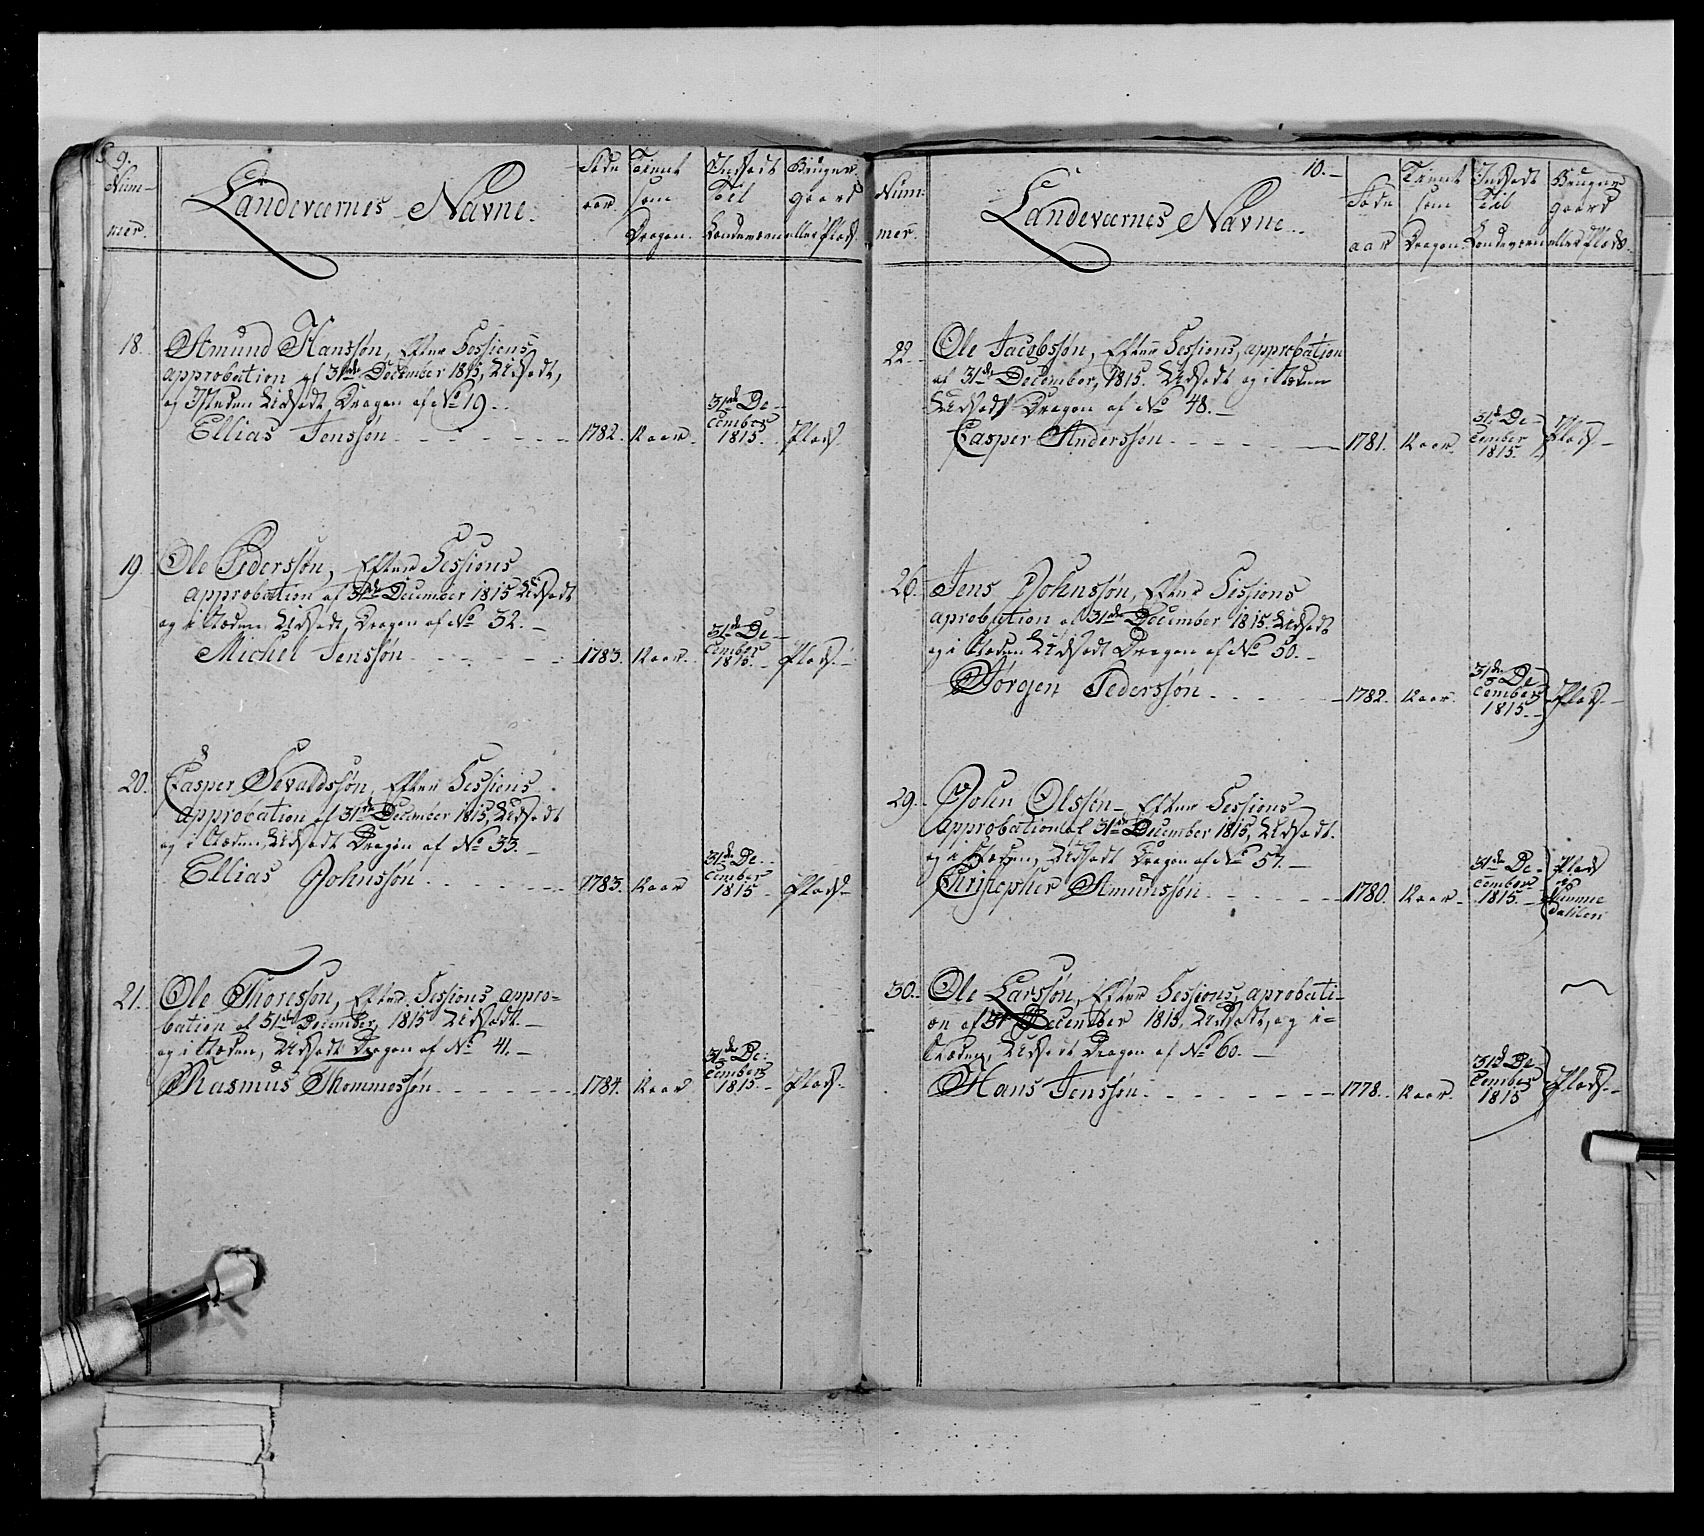 9.
Num-
mer.
Landeværnes Navne.
Føde
aar.
Tient
som
Dragon.
Indsadt
til
Landeværn
Bruger
gaard
eller Plads.
18.
Amund Hanssøn, Efter Sessions
approbation af 31te December 1815, Udsadt,
og Isteden Udsadt Dragon af No 19.
Ellias Jenssøn 1782. Aar. 31te De-
cember
1815. Plads.
19.
Ole Pederssøn, Efter Sessions
approbation af 31te December 1815 Udsadt
og i stæden Udsadt, Dragon af No 32.
Michel Jenssøn 1783. Aar. 31te De-
cember
1815. Plads.
20.
Casper Sevaldssøn, Efter Sessions
approbation af 31te December 1815, Udsadt
og i stæden, Udsadt Dragon af No 33.
Ellias Johnssøn 1783. Aar 31te De-
cember
1815 Plads.
21.
Ole Thoressøn, Efter Sessions appro-
bation af 31te December, 1815 Udsadt.
og i stæden, Udsadt Dragon af No 41.
Rasmus Thommessøn 1784. Aar. 31te De-
cember
1815. Plads.
10.
Num-
mer.
Landeværnes Navne.
Føde
aar
Tient
som
Dragon.
Indsadt
til
Landeværn
Bruger
gaard
eller Plads.
22.
Ole Jacobssøn, Efter Sessions, approbation
af 31te December, 1815. Udsadt og i stæden
Udsadt Dragon af No 48.
Casper Anderssøn 1781. Aar. 31te De-
cember
1815. Plads.
26.
Jens Johnssøn, Efter Sessions
aprobation af 31te December 1815. Udsadt
og i stæden Udsadt Dragon af No 50.
Jørgen Pederssøn 1782. Aar. 31te De-
cember
1815. Plads.
29.
John Olssen, Efter Sessions
approbation af 31te December 1815, Udsadt.
og i stæden, Udsadt Dragon af No 57.
Christopher Amundssøn 1780. Aar. 31te De-
cember
1815. Plads
30.
Ole Larssøn, Efter Sessions, aprobati-
on af 31te December 1815, Udsadt, og i-
stæden, Udsadt Dragon af No 60.
Hans Jenssøn 1778. Aar. 31te De-
cember
1815 Plads.